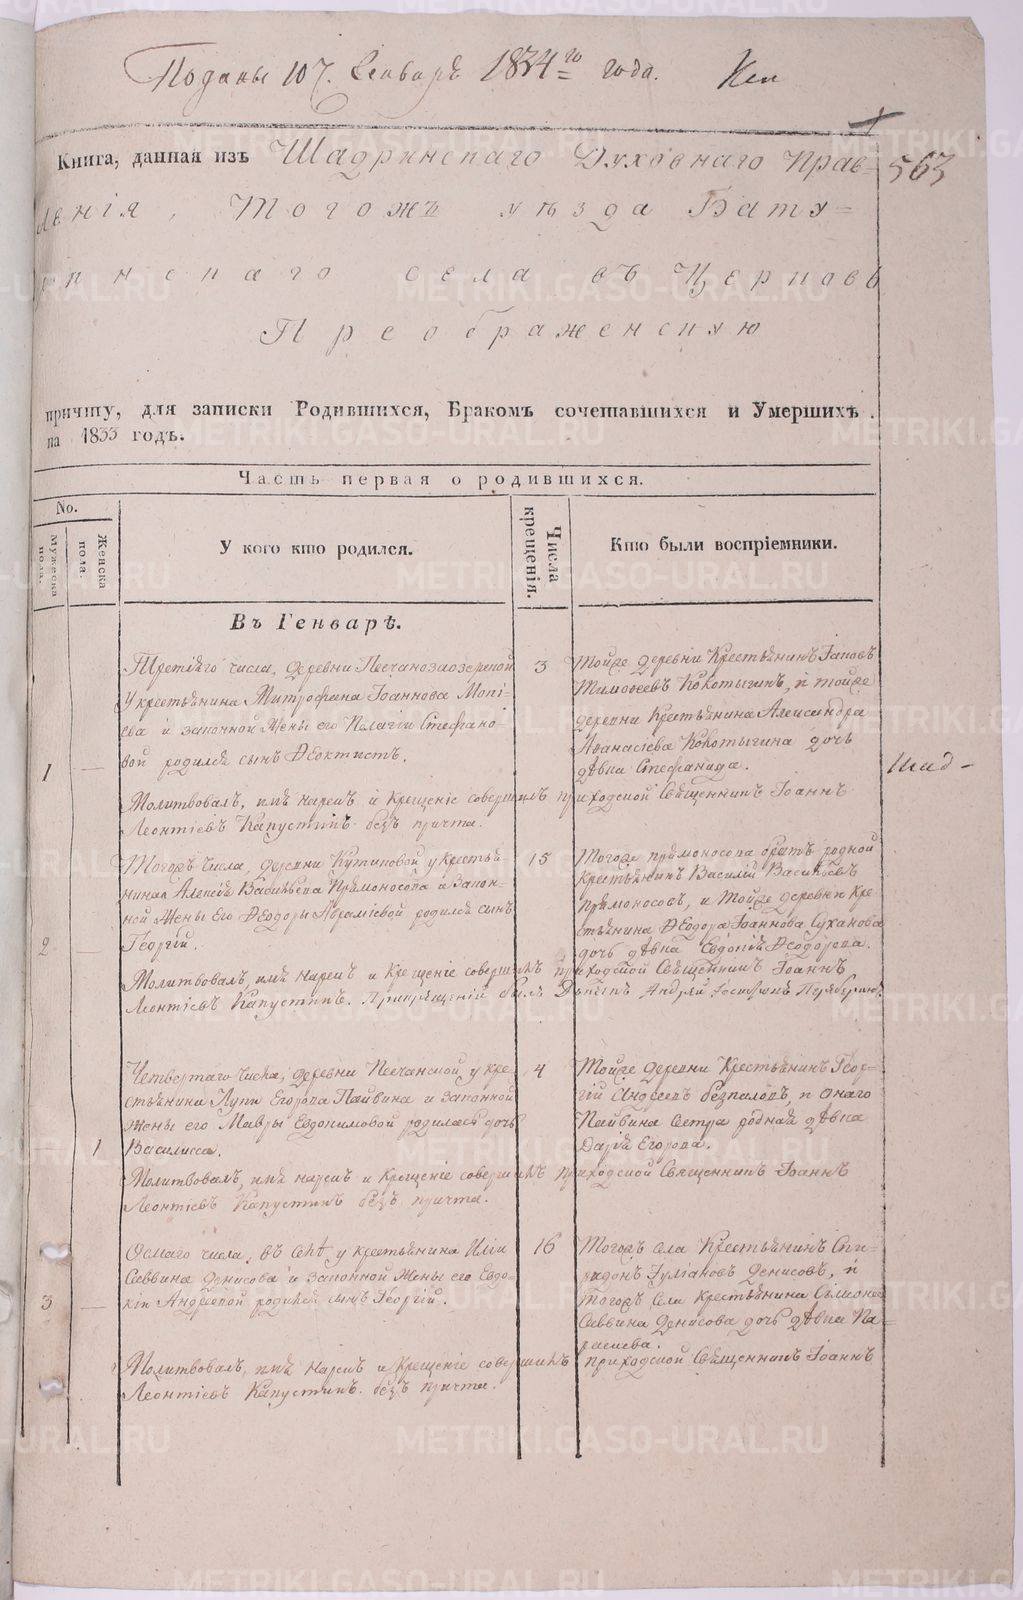 Поданы 10 Генваря 1834го года.
563
Книга, данная изъ Шадринскаго Духовнаго Прав=
ленія, Тогожъ уѣзда Бату=
ринскаго села въ Церковь
Преображенскую
причту, для записки Родившихся, Бракомъ сочетавшихся и Умершихъ
на 1833 годъ.
Часть первая о родившихся.
No.
Мужеска пола.
Женска пола.
У кого кто родился.
Числа крещенія.
Кто были воспріемники.
Въ Генварѣ.
1 —
Третіяго числа, деревни Песчанозаозерной
у крестьянина Митрофана Іоаннова Мокі-
ева и законной жены его Пелагіи Стефано-
вой родился сынъ Ѳеоктистъ.
3
Тойже деревни Крестьянинъ Іаковъ
Тимоѳеевъ Кокотыгинъ, и тойже
деревни Крестьянина Александра
Аѳанасіева Кокотыгина дочь
дѣвка Стефанида.
Шад-
Молитвовалъ, имя нарекъ и Крещеніе совершилъ приходской Священникъ Іоаннъ
Леонтіевъ Капустинъ безъ причта.
2 —
Тогожъ числа, деревни Кутиковой у Крестья-
нина Алексія Васильева Прямоносова и Закон-
ной Жены Его Ѳеодоры Авраміевой родился сынъ
Георгій.
15
Тогоже Прямоносова братъ родной
Крестьянинъ Василій Васильевъ
Прямоносовъ, и Тойже деревни Кре-
стьянина Ѳеодора Іоаннова Суханова
дочь дѣвка Евдокія Ѳеодорова.
Молитвовалъ, имя нарекъ и Крещеніе совершилъ приходской Священникъ Іоаннъ
Леонтіевъ Капустинъ. При крещеніи былъ Дьячекъ Андрей
1
Четвертаго числа, деревни Песчанской, у кре-
стьянина Луки Егорова Пайвина и законной
жены его Мавры Евдокимовой родилась дочь
Василисса.
4
Тойже деревни Крестьянинъ Геор-
гій Андреевъ Безпаловъ, и онаго
Пайвина сестра родная дѣвка
Дарія Егорова.
Молитвовалъ, имя нарекъ и Крещеніе совершилъ приходской Священникъ Іоаннъ
Леонтіевъ Капустинъ безъ причта.
3 —
Осмаго числа, въ селѣ у крестьянина Иліи
Саввина Денисова и законной Жены его Евдо-
кіи Андреевой родился сынъ Георгій.
16
Тогожъ села Крестьянинъ Спи-
ридонъ Іуліановъ Денисовъ, и
тогожъ села крестьянина Симеона
Саввина Денисова дочь дѣвка Па-
раскева.
Молитвовалъ, имя нарекъ и Крещеніе совершилъ приходской Священникъ Іоаннъ
Леонтіевъ Капустинъ безъ причта.
METRIKI.GASO-URAL.RU